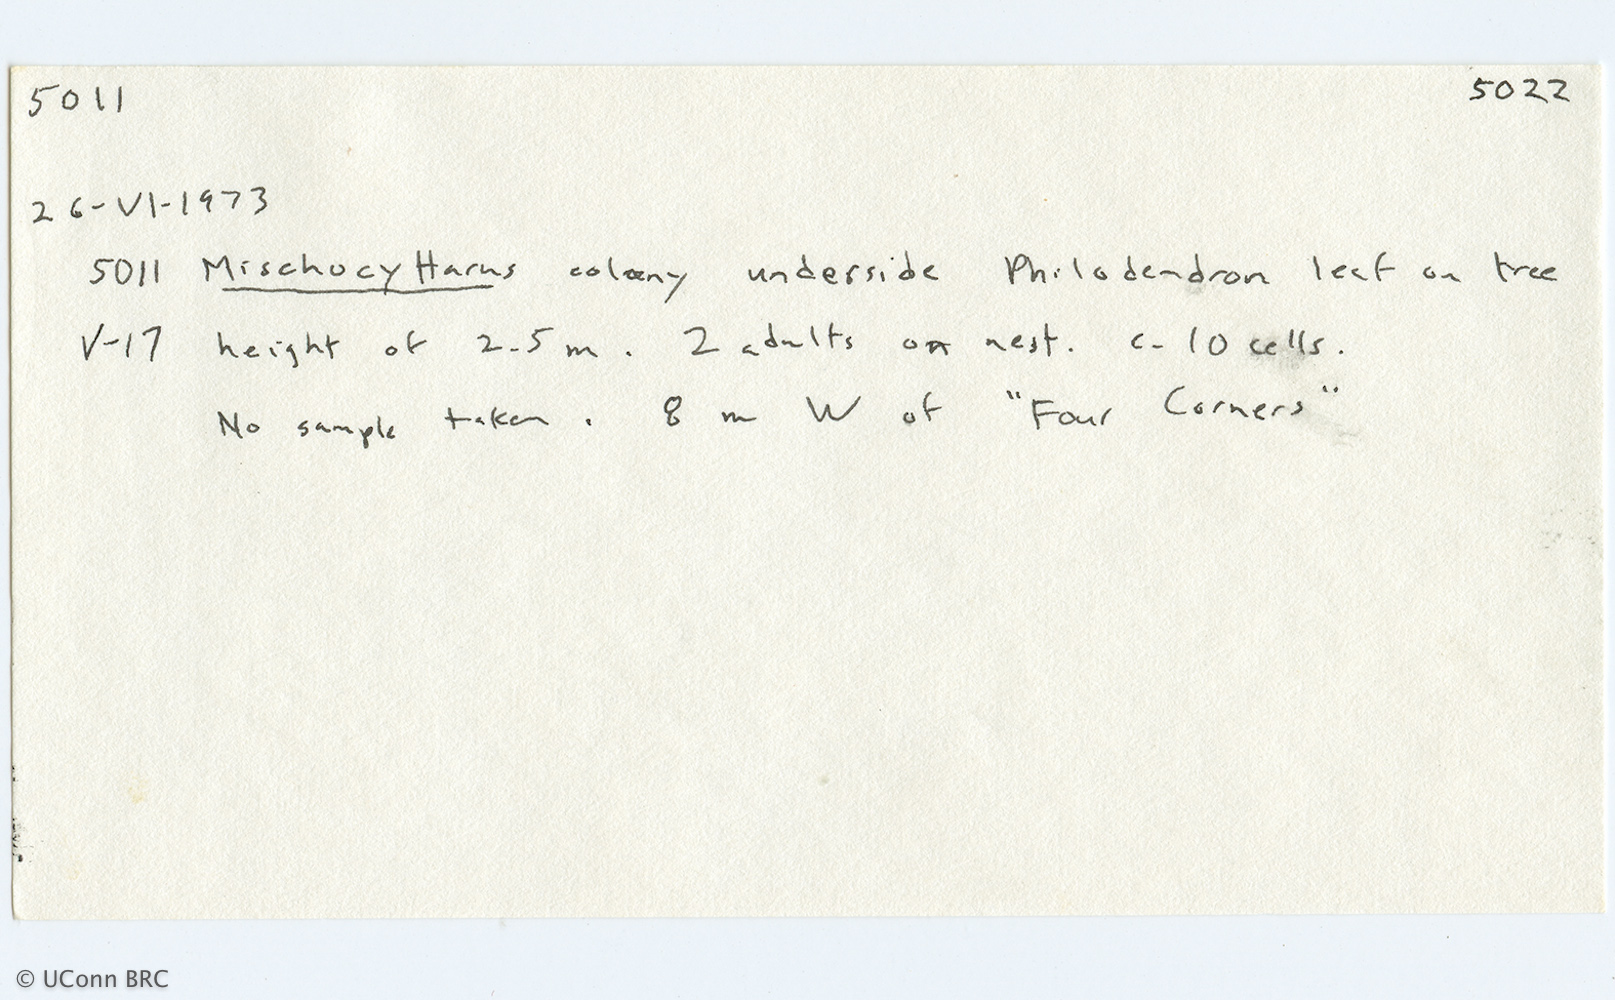 5011 5022
26-VI-1973
5011 Mischocyttarus colony underside Philodendron leaf on tree
V-17 height of 2.5 m. 2 adults on nest. c. 10 cells.
No sample taken. 8 m W of "Four Corners"
© UConn BRC